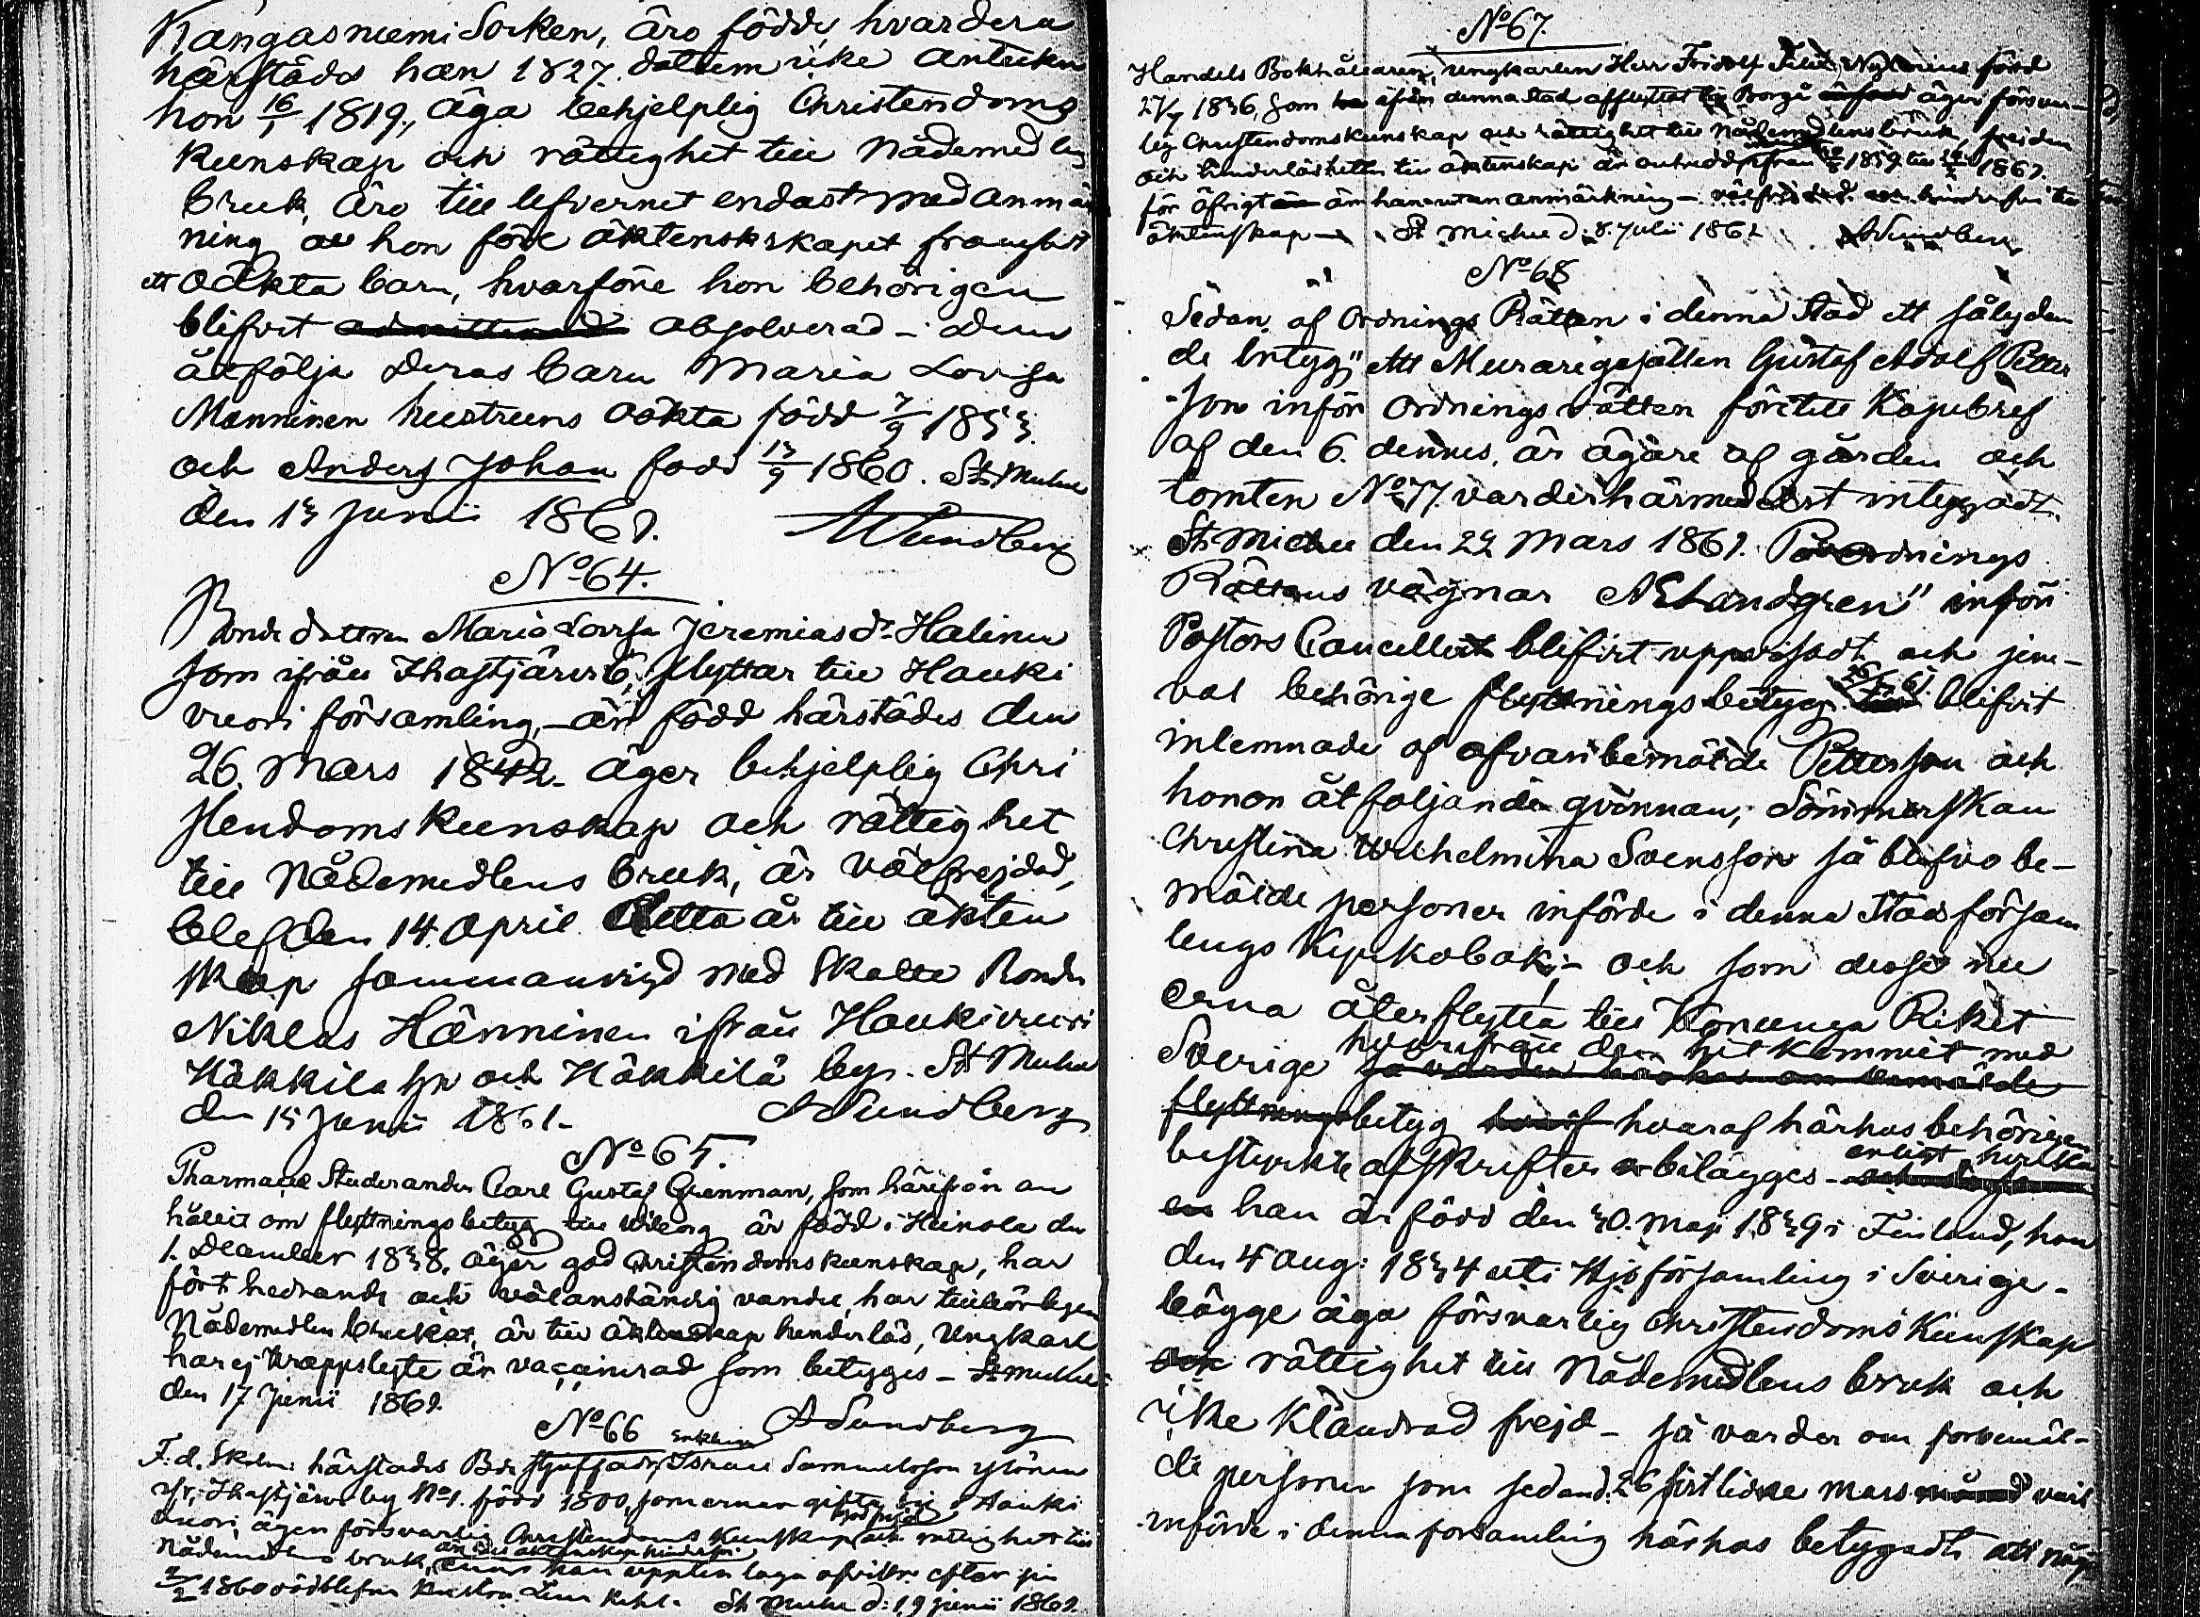 Kangasniemi Socken, äro födde hvardera
härstädes han 1827. datum icke anteckn
hon 16/1 1819., äga behjelplig Christendoms
kunskap och rättighet till Nådemedlens
bruk, äro till lefvernet endast med anmärk
ning att hon före äktenskskapet framfödt
ett oäkta barn, hvarföre hon behörigen
blifvit absolverad – Dem
åtfölja deras barn Maria Lovisa
Manninen hustruns oäkta född 7/9 1853.
och Anders Johan född 13/9 1860. St. Michel
den 13 Junii 1861. A Sundberg
No 64.
Bonde dottren Maria Lovisa Jeremias dr Halinen
som ifrån Ihastjärvi 6, flyttar till Hauki
vuori församling, – är född härstädes den
26. Mars 1842. äger behjelplig Chri
stendoms kunskap och rättighet
till Nådemedlens bruk, är välfrejdad,
blef den 14. April detta år till äkten
skap sammanvigd med Skatte Bonden
Niklas Hänninen ifrån Haukivuori
Häkkilä by. St Michel
den 15 Junii 1861. A Sundberg
No 65.
Pharmacie Studeranden Carl Gustaf Grenman, som härifrån an
hållit om flyttningsbetyg till Wiborg är född i Heinola den
1. December 1838. äger god Christendomskunskap, har
fört hedrande och välanständig vandel, har
Nådemedlen begagnat, är till äktenskap hinderlös, Ungkarl
har ej kroppslyte är vaccinerad som betygges – St Michel
den 17 Junii 1861.
A Sundberg
No 66
F.d. härstädes Enklingen Israel Sammelsson Ylönen
ifr. Ihastjärvi by No 1. född 1800, som ernar gifta sig i Hauki
vuori, äger försvarlig Christendoms kunskap och rättighet till
Nådemedlens bruk, är till äktenskap hinderfri
1860 St Michel d: 19 Junii 1861.
No 67.
Handels Bokhållaren, ungkarlen Herr Fridolf född
1836, som ifrån denna Stad afflyttat till Borgå äger försvar-
lig Christendomskunskap och rättighet till Nådemedlens bruk, frejden
och hinderlösheten till äktenskap är outredd ifrån 1859 till 1861.
för öfrigt är han utan anmärkning –
äktenskap – St Michel d: 8. Julii 1861 A Sundberg
No 68
Sedan af Ordnings Rätten i denna Stad ett sålydan
de intyg, "Att Muraregesällen Gustaf Adolf Petter
son inför Ordningsrätten företett Köpebref
af den 6. dennes, är ägare af gården och
tomten No 77. varder härmedelst intygadt.
St Michel den 22 Mars 1861. På Ordnings
Rättens vägnar A E Landgren" inför
Pastors Cancelleit blifvit uppvisadt och jem-
val behörige flyttningsbetyg blifvit
inlemnade af ofvanbemälde Petterson och
honon åtföljande qvinnan, Sömmerskan
Christina Wilhelmina Svensson så blefvo be-
mälde personer införde i denna Stads försam
lings Kyrkobok; – och som desse nu
erna återflytta till Konunga Riket
Sverige hvarifrån den hitkommit med
flyttningsbetyg hvaraf härhos behörigen
bestyrkte afskrifter bilägges – enligt hvilka
han är född den 30. Maji 1839 i Finland, hon
den 4 Aug: 1834 uti Hjo församling i Sverige –
bägge äga försvarlig Christendoms Kunskap
och rättighet till Nådemedlens bruk och
icke klandrad frejd – så varder om förbemäl-
de personer som sedan d: 26 sistledne Mars månad varit
införde i denna församling härhos betygadt att